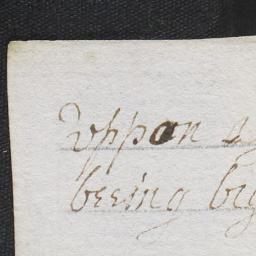 Vppon a
beeing big